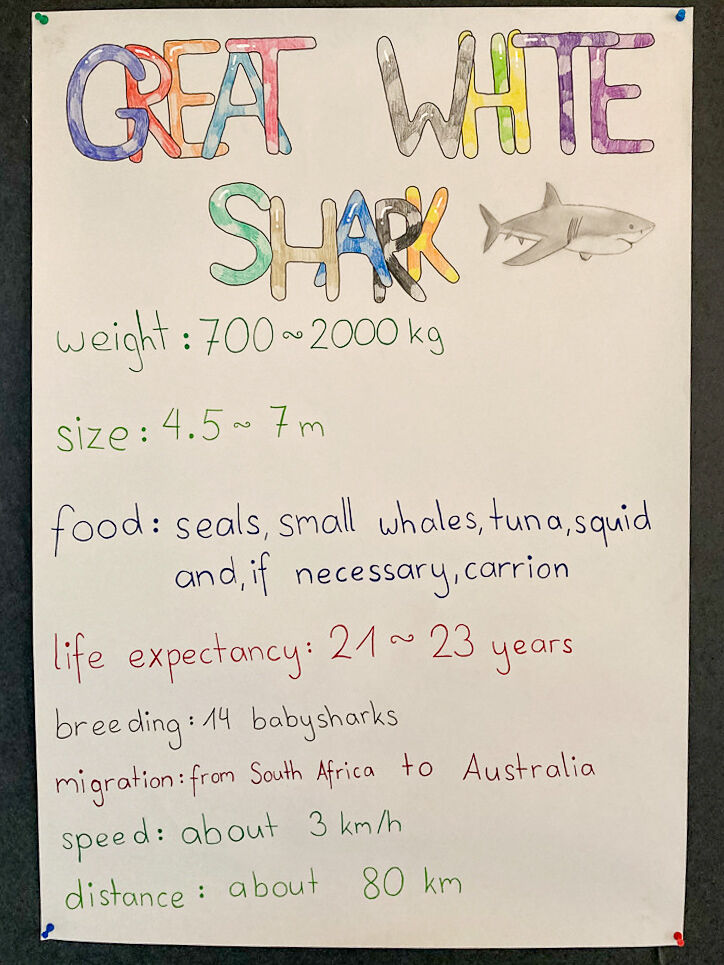 GREAT WHITE
SHARK
weight: 700~2000 kg
size: 4.5~ 7m
food: seals, small whales, tuna, squid
and, if necessary, carrion
life expectancy: 21~23 years
breeding: 14 babysharks
migration: from South Africa to Australia
speed: about 3 km/h
distance: about 80 km